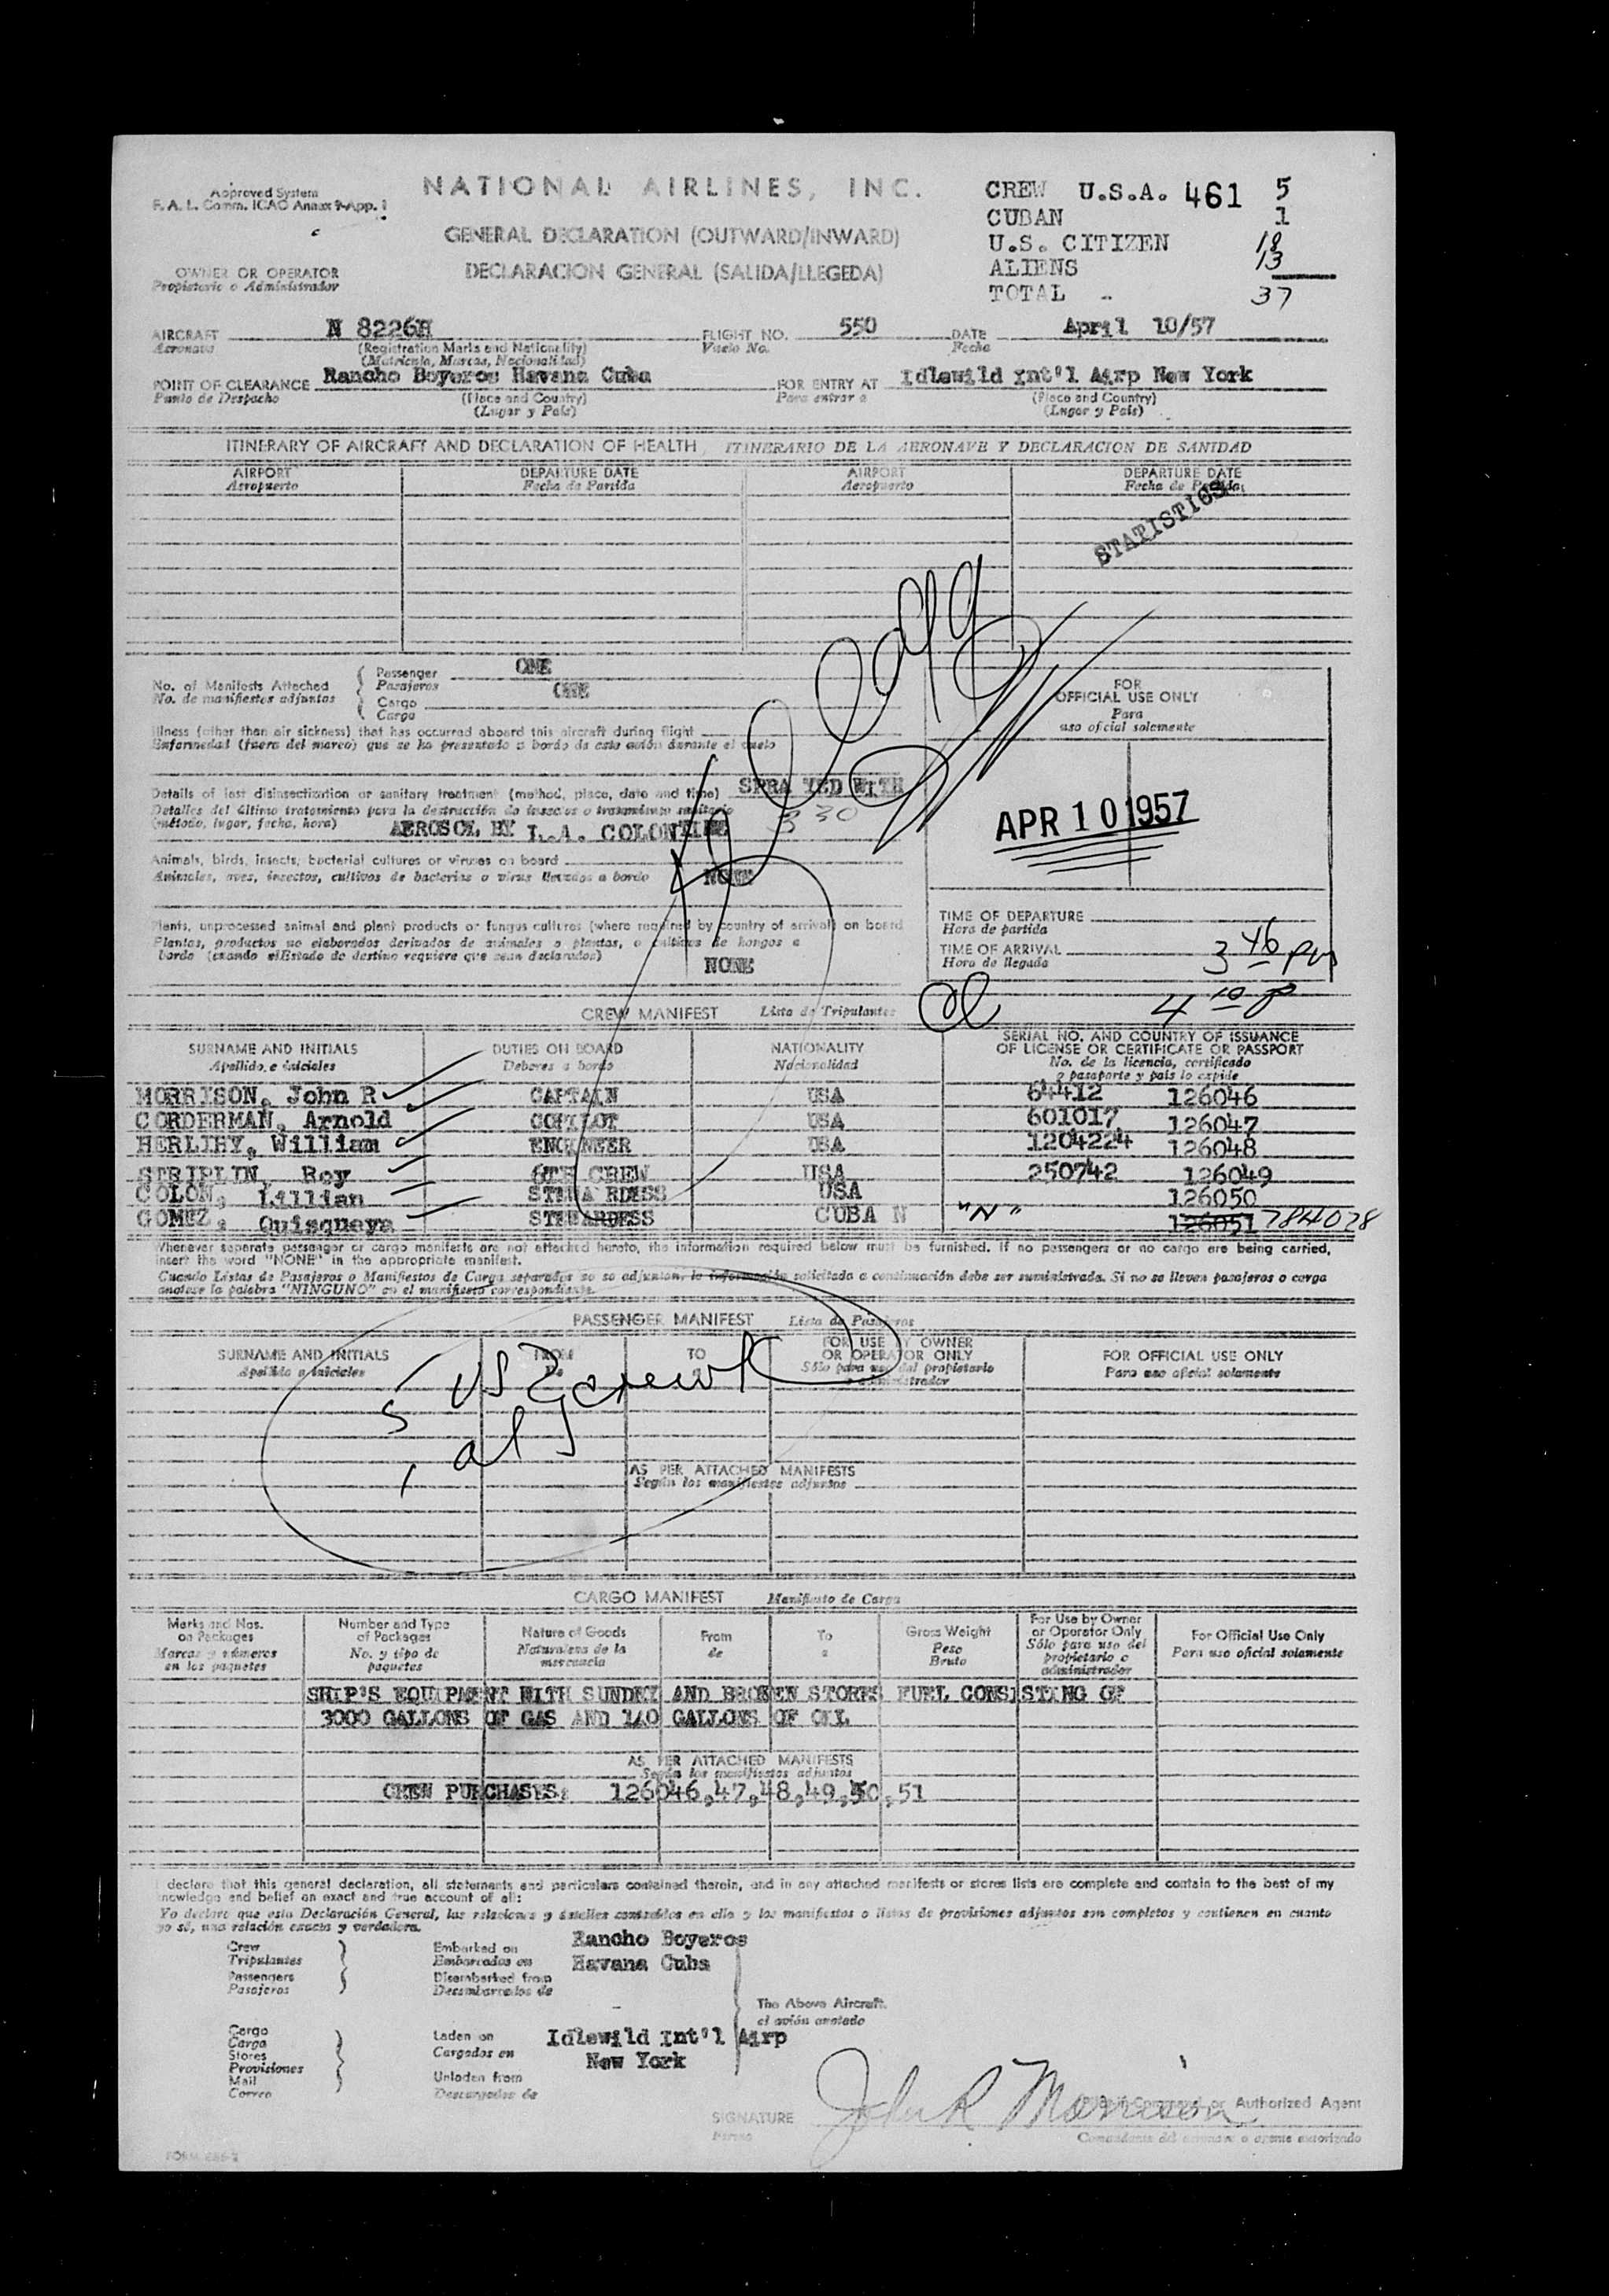 Approved System
F. A. L. Comm. ICAO Annex 9-App. 1
NATIONAL AIRLINES, INC.
GENERAL DECLARATION (OUTWARD/INWARD)
DECLARACION GENERAL (SALIDA/LLEGEDA)
OWNER OR OPERATOR
Propietario o Administrador
CREW U.S.A. 461 5
CUBAN 1
U.S. CITIZEN 18
ALIENS 13
TOTAL - 37
AIRCRAFT N 8226H FLIGHT NO. 550 DATE April 10/57
Aeronave (Registration Marks and Nationality) Vuelo No. Fecha
(Matricula, Marcas, Nacionalidad)
POINT OF CLEARANCE Rancho Boyeros Havana Cuba FOR ENTRY AT Idlewild Int'l Airp New York
Punto de Despacho (Place and Country) Para entrar a (Place and Country)
(Lugar y País) (Lugar y País)
ITINERARY OF AIRCRAFT AND DECLARATION OF HEALTH, ITINERARIO DE LA AERONAVE Y DECLARACION DE SANIDAD
AIRPORT DEPARTURE DATE AIRPORT DEPARTURE DATE
Aeropuerto Fecha de Partida Aeropuerto Fecha de Partida
STATISTICS
No. of Manifests Attached
No. de manifiestos adjuntos
Passenger ONE
Pasajeros
Cargo ONE
Carga
Illness (other than air sickness) that has occurred aboard this aircraft during flight
Enfermedad (fuera del mareo) que se ha presentado a bordo de este avión durante el vuelo
Details of last disinsectization or sanitary treatment (method, place, date and time) SPRA YED WITH
Detalles del último tratamiento para la destrucción de insectos o tratamiento sanitario
(método, lugar, fecha, hora) AEROSOL BY L.A. COLON 330
Animals, birds, insects, bacterial cultures or viruses on board
Animales, aves, insectos, cultivos de bacterias o virus llevados a bordo NONE
Plants, unprocessed animal and plant products or fungus cultures (where required by country of arrival) on board
Plantas, productos no elaborados derivados de animales o plantas, o cultivos de hongos a
bordo (cuando el Estado de destino requiere que sean declarados) NONE
FOR
OFFICIAL USE ONLY
Para
uso oficial solamente
APR 10 1957
TIME OF DEPARTURE
Hora de partida
TIME OF ARRIVAL 3 46 pm
Hora de llegada
4 10 P
CREW MANIFEST Lista de Tripulantes
SURNAME AND INITIALS DUTIES ON BOARD NATIONALITY SERIAL NO. AND COUNTRY OF ISSUANCE
OF LICENSE OR CERTIFICATE OR PASSPORT
Apellido, e iniciales Deberes a bordo Nacionalidad No. de la licencia, certificado
o pasaporte y país lo expide
MORRISON, John R CAPTAIN USA 64412 126046
CORDERMAN, Arnold COPILOT USA 601017 126047
HERLIHY, William ENGINEER USA 1204224 126048
STRIPLIN, Roy OTH CREW USA 250742 126049
COLON, Lillian STEWA RDESS USA 126050
GOMEZ, Quisqueya STEWARDESS CUBA N "N" 126051 784078
Whenever separate passenger or cargo manifests are not attached hereto, the information required below must be furnished. If no passengers or no cargo are being carried,
insert the word "NONE" in the appropriate manifest.
Cuando Listas de Pasajeros o Manifiestos de Carga separados no se adjuntan, la información solicitada a continuación debe ser suministrada. Si no se lleven pasajeros o carga
anotese la palabra "NINGUNO" en el manifiesto correspondiente.
PASSENGER MANIFEST Lista de Pasajeros
SURNAME AND INITIALS FROM TO FOR USE BY OWNER
OR OPERATOR ONLY FOR OFFICIAL USE ONLY
Apellido e iniciales De a Sólo para uso del propietario
o administrador Para uso oficial solamente
5 US crew
1 al
AS PER ATTACHED MANIFESTS
Según los manifiestos adjuntos
CARGO MANIFEST Manifiesto de Carga
Marks and Nos.
on Packages
Marcas y números
en los paquetes
Number and Type
of Packages
No. y tipo de
paquetes
Nature of Goods
Naturaleza de la
mercancia
From
de
To
a
Gross Weight
Peso
Bruto
For Use by Owner
or Operator Only
Sólo para uso del
propietario o
administrador
For Official Use Only
Para uso oficial solamente
SHIP'S EQUIPMENT WITH SUNDRY AND BROKEN STORES FUEL CONSISTING OF
3000 GALLONS OF GAS AND 140 GALLONS OF OIL
AS PER ATTACHED MANIFESTS
Según los manifiestos adjuntos
CREW PURCHASES: 126046,47,48,49,50,51
I declare that this general declaration, all statements and particulars contained therein, and in any attached manifests or stores lists are complete and contain to the best of my
knowledge and belief an exact and true account of all:
Yo declaro que esta Declaración General, las relaciones y detalles contenidos en ella y los manifiestos o listas de provisiones adjuntos son completos y contienen en cuanto
yo sé, una relación exacta y verdadera.
Crew
Tripulantes
Passengers
Pasajeros
Embarked on Rancho Boyeros
Embarcados en Havana Cuba
Disembarked from
Desembarcados de
The Above Aircraft.
el avión anotado
Cargo
Carga
Stores
Provisiones
Mail
Correo
Laden on Idlewild Int'l Airp
Cargados en New York
Unladen from
Descargados de
SIGNATURE John R Morrison Pilot in Command or Authorized Agent
Firma Comandante del aeronave o agente autorizado
FORM 686-2